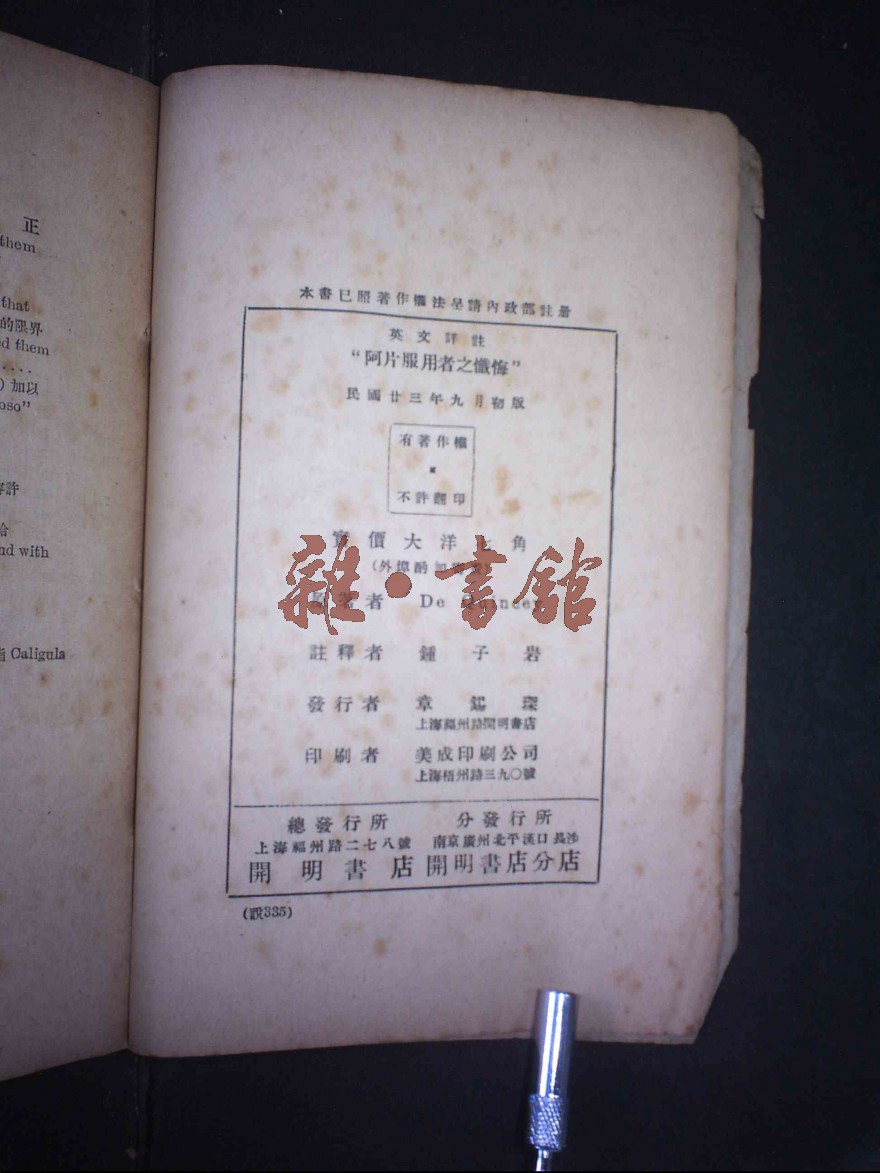 正
them
that
的限界
d them
....
) 加以
oso"
許
nd with
Caligula
本書已照著作權法呈請內政部註册
英文詳註
“阿片服用者之懺悔”
民國廿三年九月初版
有著作權
不許翻印
實價大洋七角
(外埠酌加寄費)
原著者 De Quincey
註釋者 鍾子岩
發行者 章錫琛
上海福州路開明書店
印刷者 美成印刷公司
上海梧州路三九〇號
總發行所
上海福州路二七八號
開明書店
分發行所
南京廣州北平漢口長沙
開明書店分店
(設335)
雜·書館